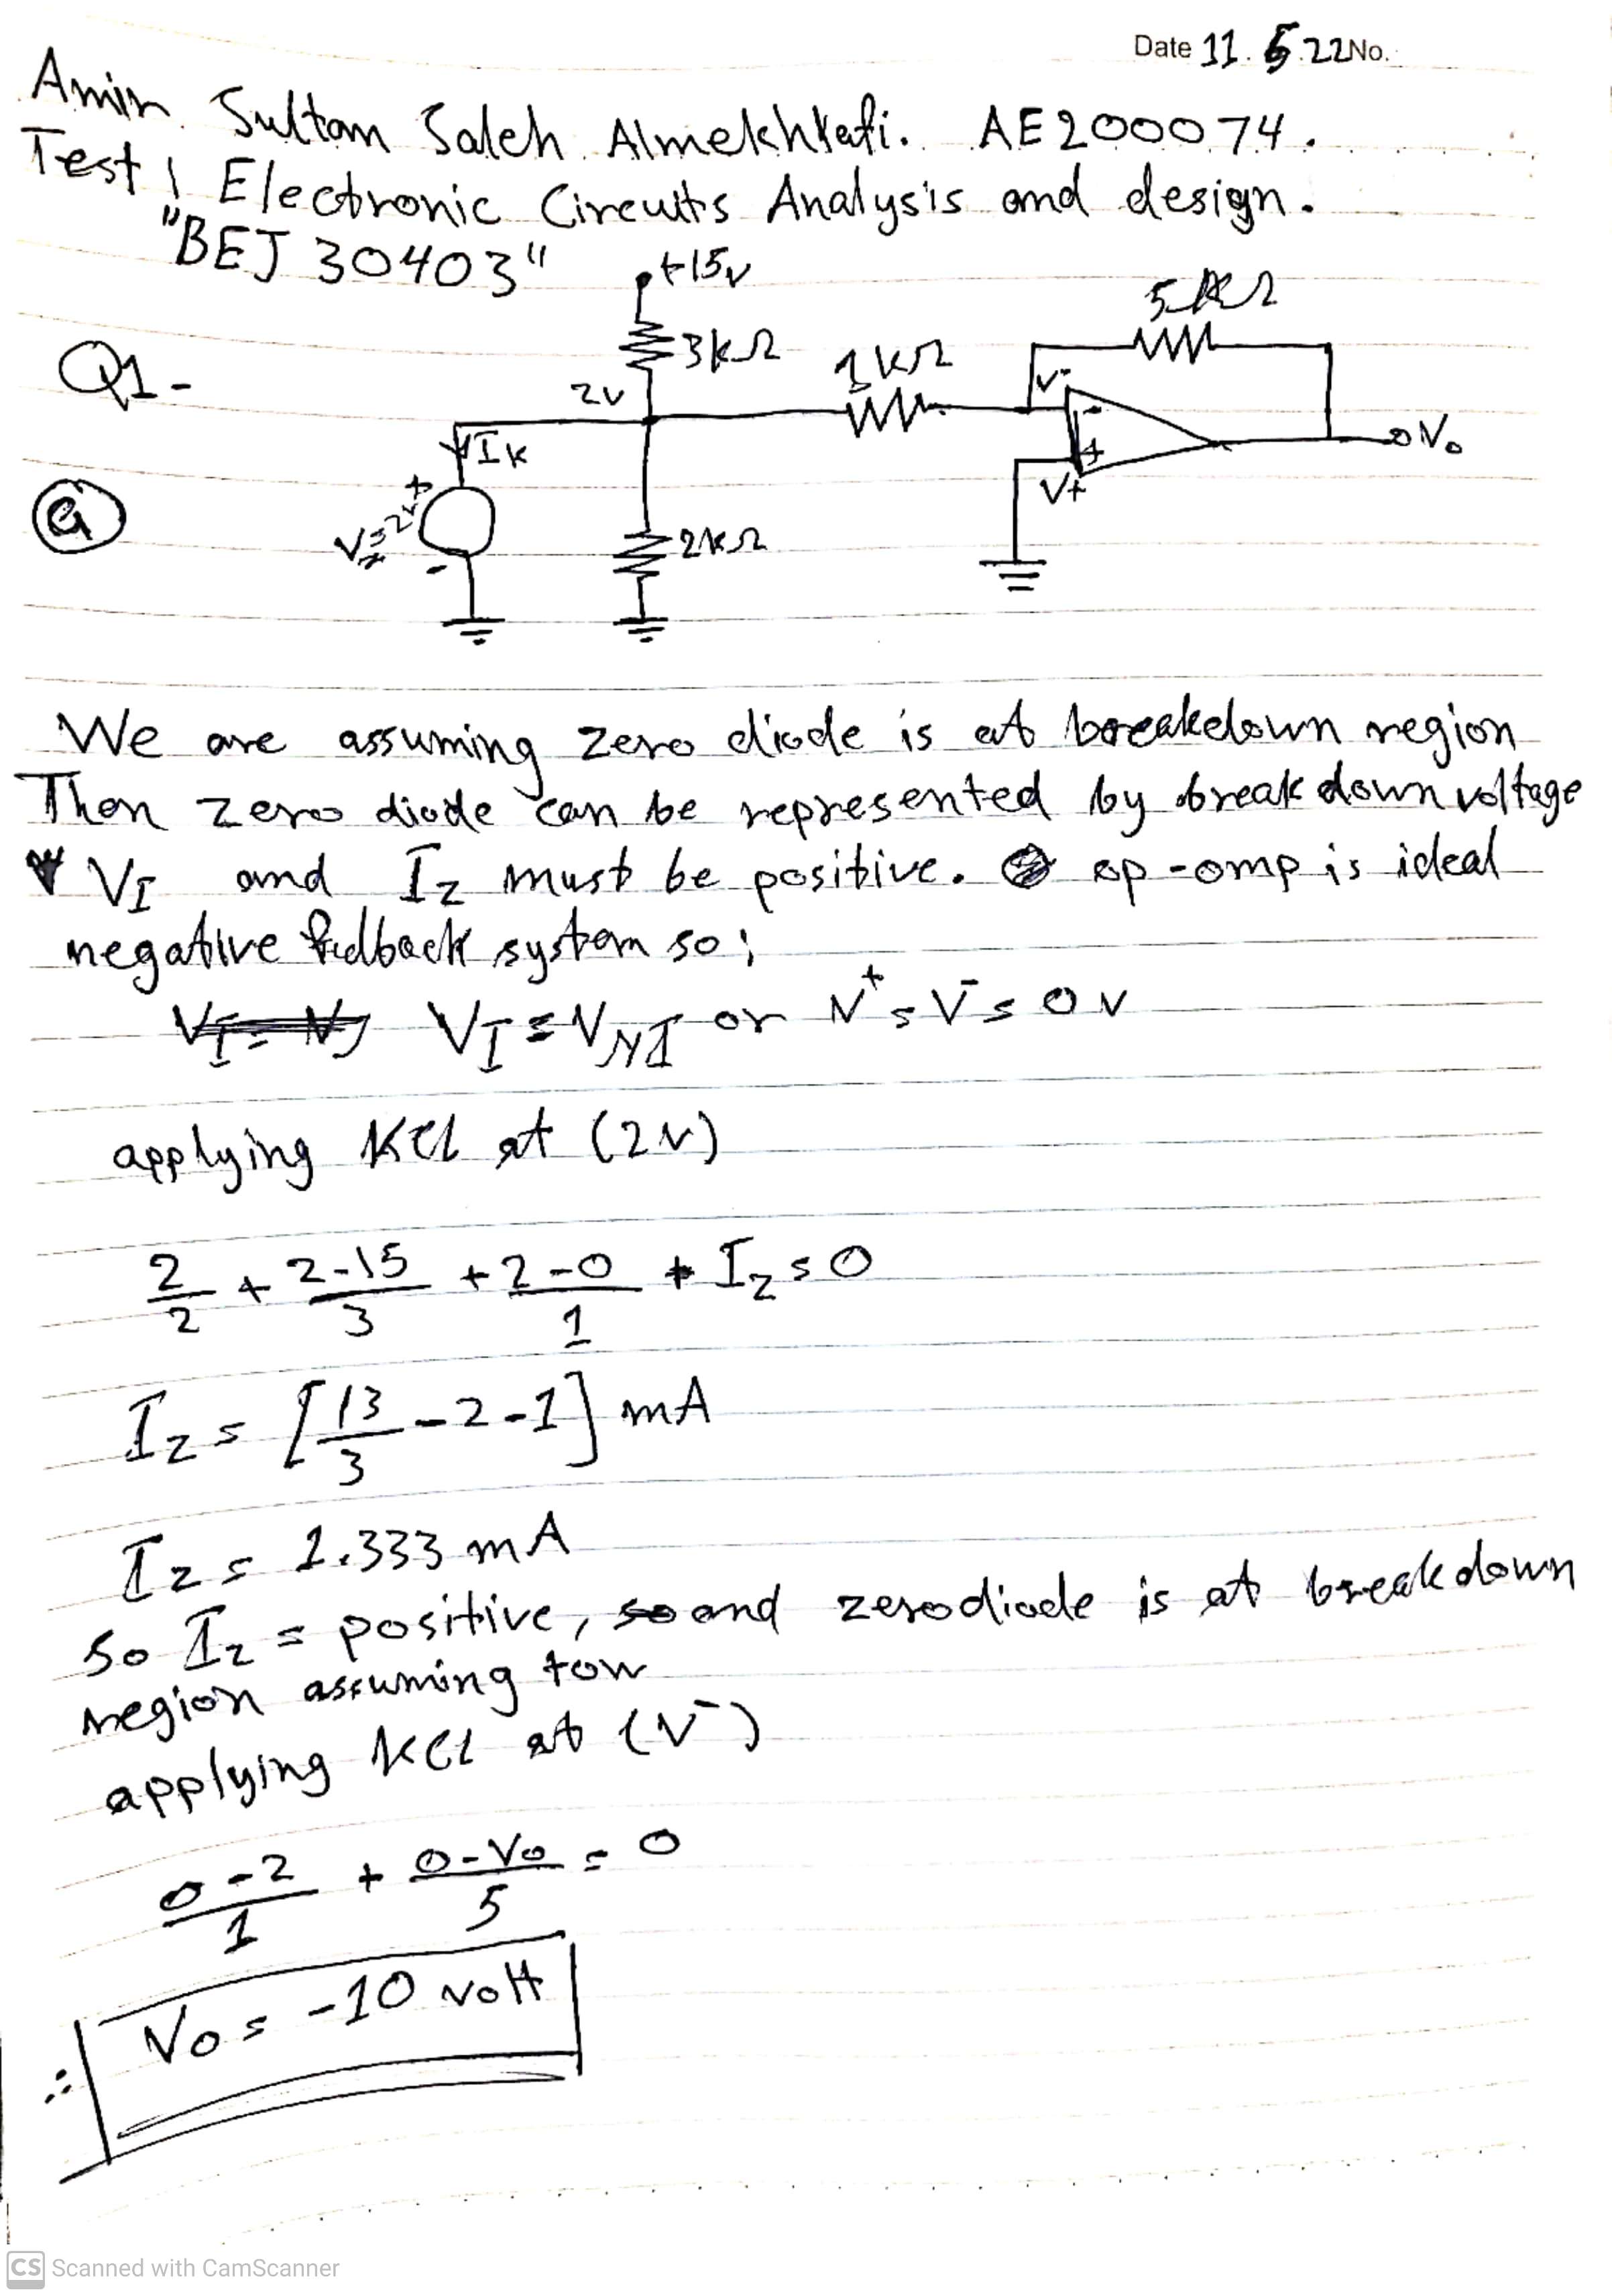 Date 11.5.22 No.:
Amin Sultan Saleh Almekhlafi. AE200074.
Test 1 Electronic Circuits Analysis and design.
"BEJ 30403"
+15v
5kΩ
Q1-
3kΩ
1kΩ
2v
V-
-
IK
Vo
+
+
V+
a
Vz=2v
2kΩ
-
We are assuming zero diode is at breakdown region
Then zero diode can be represented by break down voltage
VI and Iz must be positive. op-omp is ideal
negative fedback system so;
VI = VNI or V+ = V- = 0 v
applying KCL at (2v)
2/2 + 2-15/3 + 2-0/1 + Iz = 0
Iz = [13/3 - 2 - 1] mA
Iz = 1.333 mA
So Iz = positive, so and zero diode is at breakdown
region assuming tow
applying KCL at (V-)
0-2/1 + 0-Vo/5 = 0
∴ Vo = -10 volt
CS Scanned with CamScanner